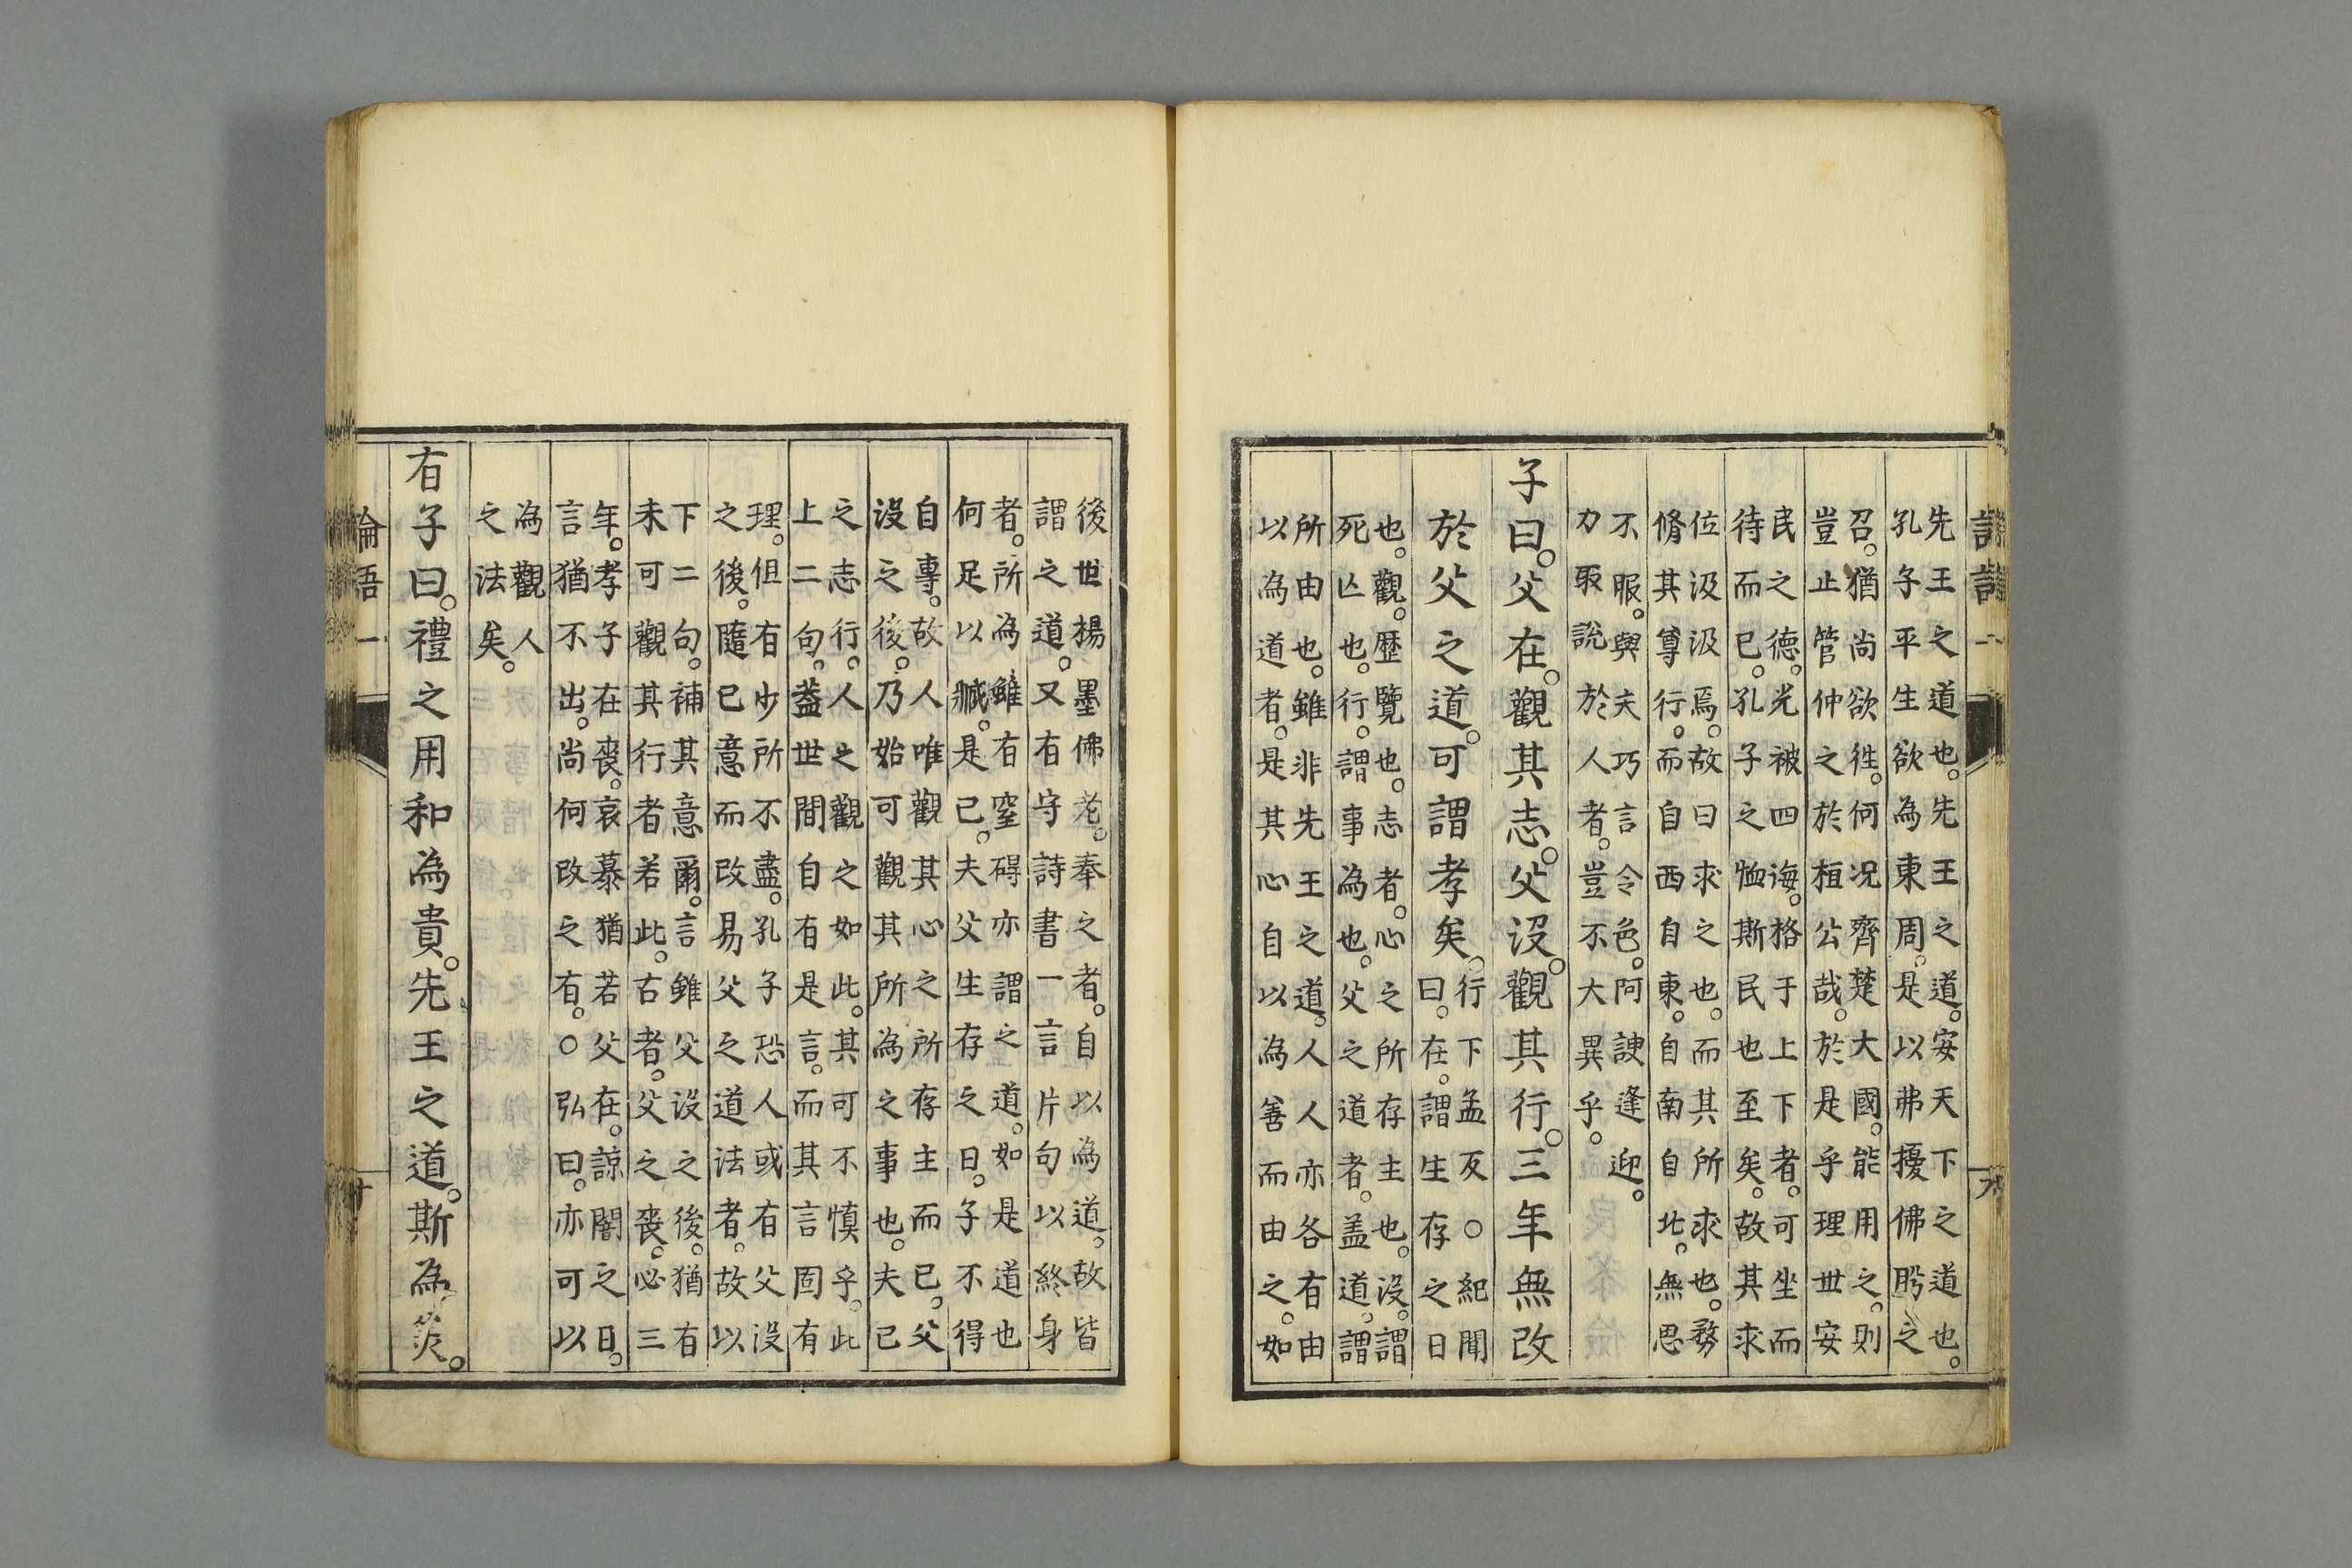 先王之道也。先王之道。安天下之道也。
孔子平生欲為東周。是以弗擾佛肸之
召。猶尚欲徃。何況齊楚大國。能用之。則
豈止管仲之於桓公哉。於是乎理世安
民之德。光被四海。格于上下者。可坐而
待而已。孔子之恤斯民也至矣。故其求
位汲汲焉。故曰求之也。而其所求也。務
脩其尊行。而自西自東。自南自北。無思
不服。與夫巧言令色。阿諛逢迎。
力取說於人者。豈不大異乎。
子曰。父在。觀其志。父沒。觀其行。三年無改
於父之道。可謂孝矣。
行下孟反○紀聞
曰。在。謂生存之日
也。觀。歷覽也。志者。心之所存主也。沒。謂
死亡也。行。謂事為也。父之道者。盖道。謂
所由也。雖非先王之道。人人亦各有由
以為道者。是其心自以為善而由之。如
後世揚墨佛老。奉之者。自以為道。故皆
謂之道。又有守詩書一言片句以終身
者。所為雖有窒碍亦謂之道。如是道也
何足以臧。是已。夫父生存之日。子不得
自專。故人唯觀其心之所存主而已。父
沒之後。乃始可觀其所為之事也。夫已
之志行。人之觀之如此。其可不慎乎。此
上二句。葢世間自有是言。而其言固有
理。但有少所不盡。孔子恐人或有父沒
之後。隨已意而改易父之道法者。故以
下二句。補其意爾。言雖父沒之後。猶有
未可觀其行者若此。古者。父之喪。必三
年。孝子在喪。哀慕猶若父在。諒闇之日。
言猶不出。尚何改之有。○弘曰。亦可以
為觀人
之法矣。
有子曰。禮之用和為貴。先王之道。斯為
論語一